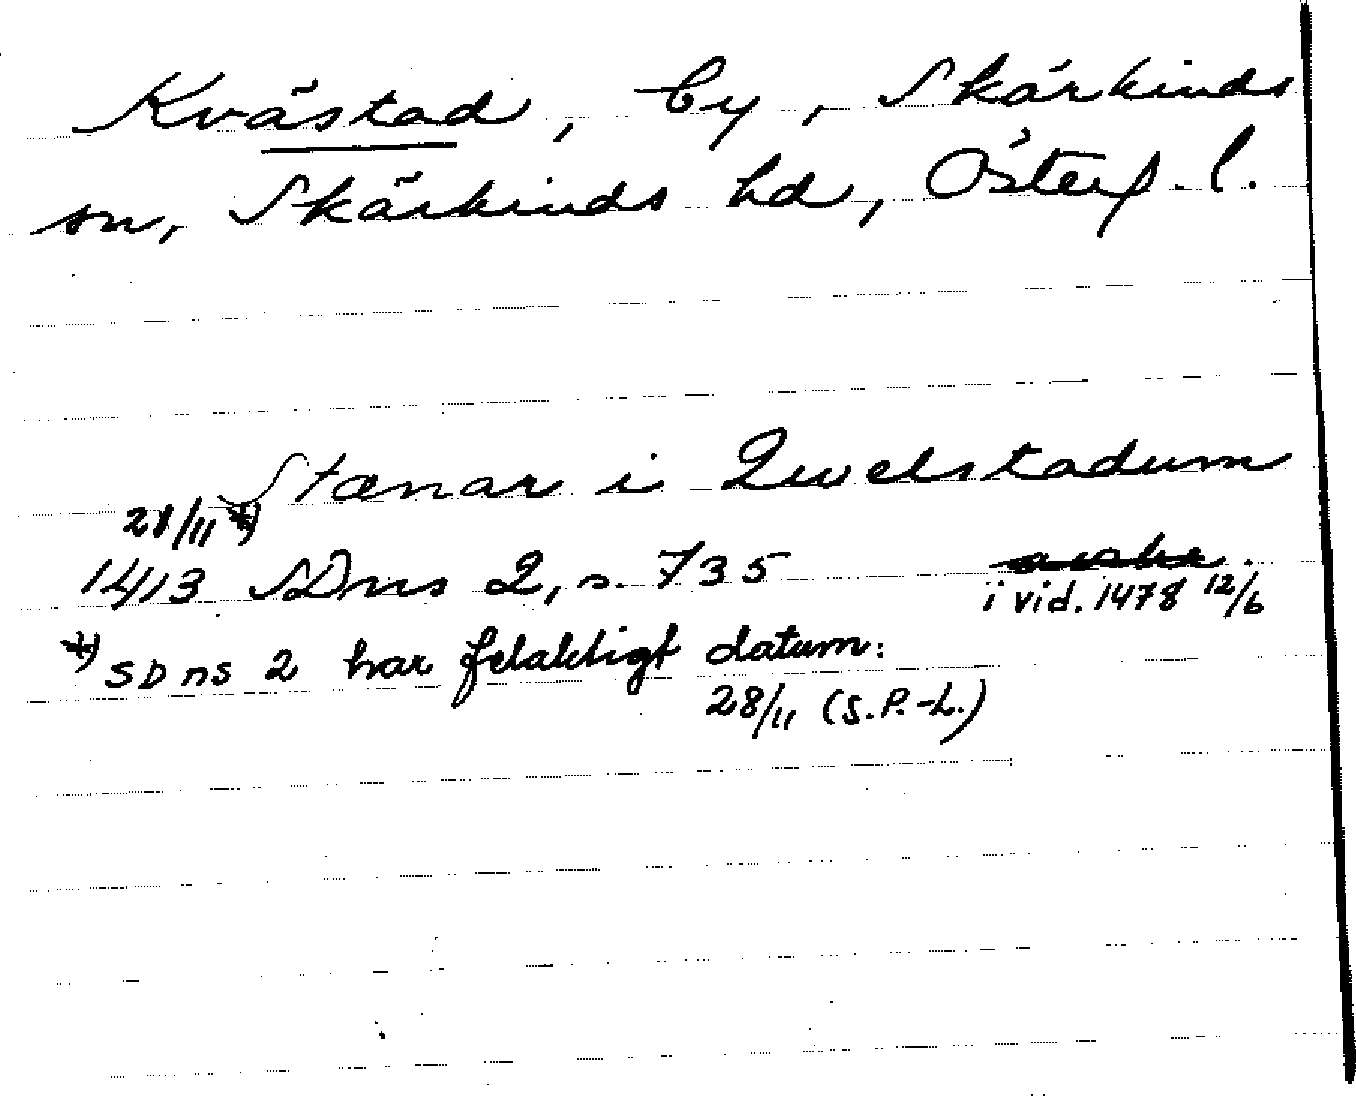 Kvästad, by, Skärkinds
sn, Skärkinds hd, Österg. l.
Stænar i Quelstadum
28/11 *)
1413 SDns 2, s. 735
i vid. 1478 12/6
*) SDns 2 har felaktigt datum:
28/11 (S.P.-L.)